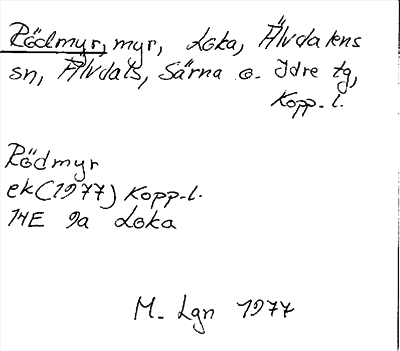 Rödmyr, myr, Loka, Älvdalens
sn, Älvdals, Särna o. Idre tg,
Kopp. l.
Rödmyr
ek (1977) Kopp. l.
14E 9a Loka
M. Lgn 1977